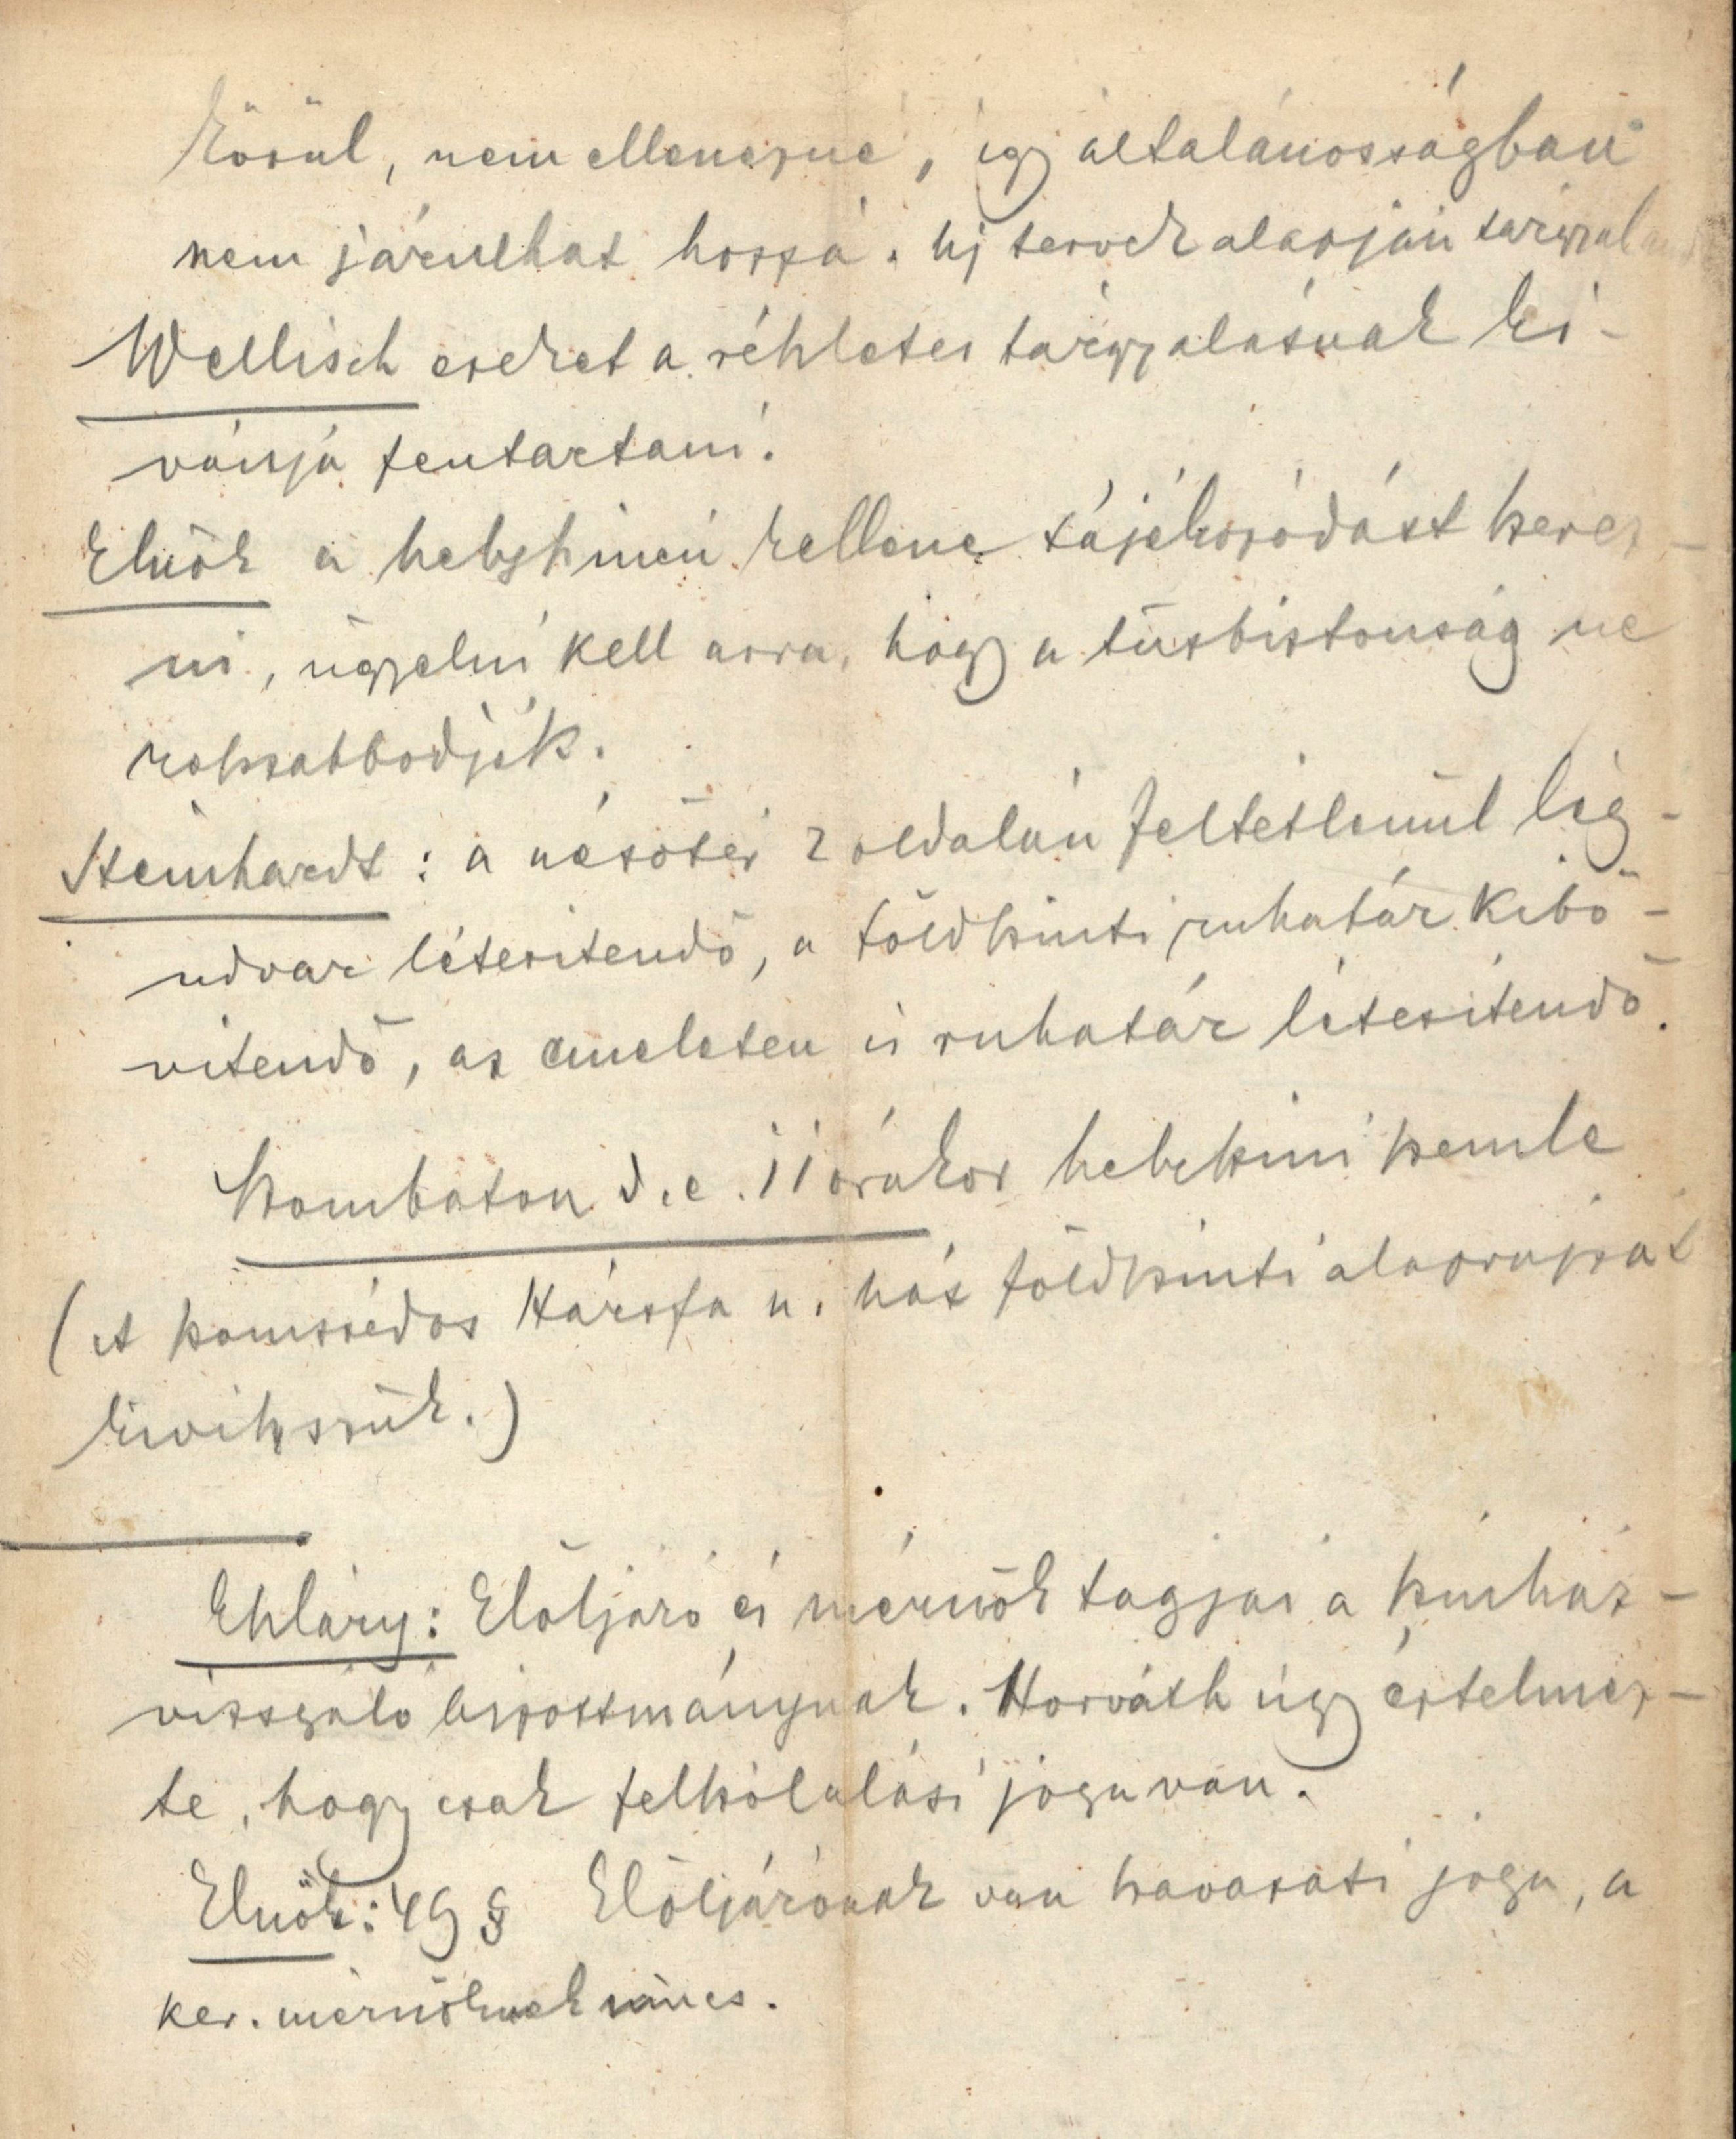 közül, nem ellenezné, így általánosságban
nem járulhat hozzá. Uj tervek alapján tárgyalni
Wellisch ezeket a részletes tárgyalásnak ki-
vánja fentartani.
Elnök a helyszinén kellene tájékozódást szerez-
ni, ügyelni kell arra, hogy a tüzbiztonság ne
rosszabbodjék.
Steinhardt: a nézőtér 2 oldalán feltétlenül lég-
udvar létesitendő, a földszinti ruhatár kibő-
vitendő, az emeleten is ruhatár létesitendő.
Szombaton d. e. 11 órakor helyszini szemle
(A szomszédos Hársfa u. ház földszinti alaprajzát
kivisszük.)
Ehláry: Előljáró és mérnök tagjai a szinház-
vizsgáló bizottmánynak. Horváth úgy értelmez-
te, hogy csak felszólalási joga van.
Elnök: 49 § Előljárónak van szavazati joga, a
ker. mérnöknek nincs.